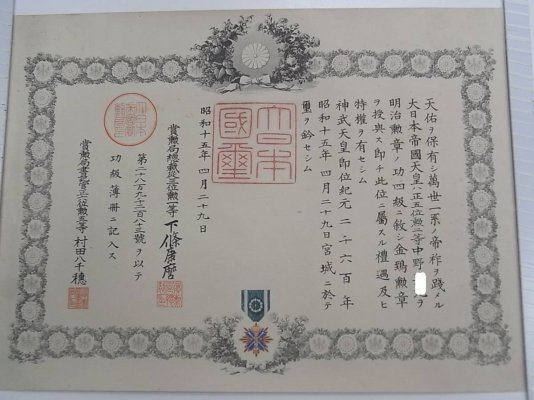 天佑ヲ保有シ萬世一系ノ帝祚ヲ踐メル
大日本帝國天皇ハ正五位勲一等中野
ヲ
明治勲章ノ功四級ニ敘シ金鵄勲章
ヲ授與ス即チ此位ニ屬スル禮遇及ヒ
特權ヲ有セシム
神武天皇即位紀元二千六百年
昭和十五年四月二十九日宮城ニ於テ
璽ヲ鈐セシム
大日本國璽
昭和十五年四月二十九日
賞勲局總裁從三位勲一等下條康麿
第二十八万九千三百八十三號ヲ以テ
功級簿册ニ記入ス
賞勲局書記官正六位勲五等村田八千穗